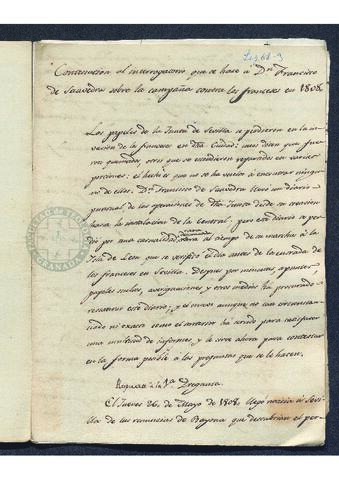 Leg. 68-3
Contestacion al interrogatorio que se hace á Dn. Francisco
de Saavedra sobre la campaña contra los franceses en 1808.
Los papeles de la Junta de Sevilla se perdieron en la in-
vasion de los franceses en dha Ciudad: unos dicen que fue-
ron quemados, otros que se escondieron repartidos en varias
porciones: el hecho es que no se ha vuelto á encontrar ningu-
no de ellos. Dn. Francisco de Saavedra llevó un diario
puntual de las operaciones de dha Junta desde su creacion
hasta la instalacion de la Central, pero este diario se per-
dió por una casualidad al tiempo de su marcha á la
Isla de Leon que se verificó el dia antes de la entrada de
los franceses en Sevilla. Despues por memoria, apuntes,
papeles sueltos, averiguaciones y otros medios ha procurado
restaurar este diario, y el nuevo aunque no tan circunstan-
ciado ni exacto como el anterior ha servido para
una multitud de informes, y le sirve ahora para contestar
en la forma posible á las preguntas que se le hacen.
Respuesta á la 1a. Pregunta
El Jueves 26 de Mayo de 1808, llegó noticia á Sevi-
lla de las renuncias de Bayona que descubrian el per-